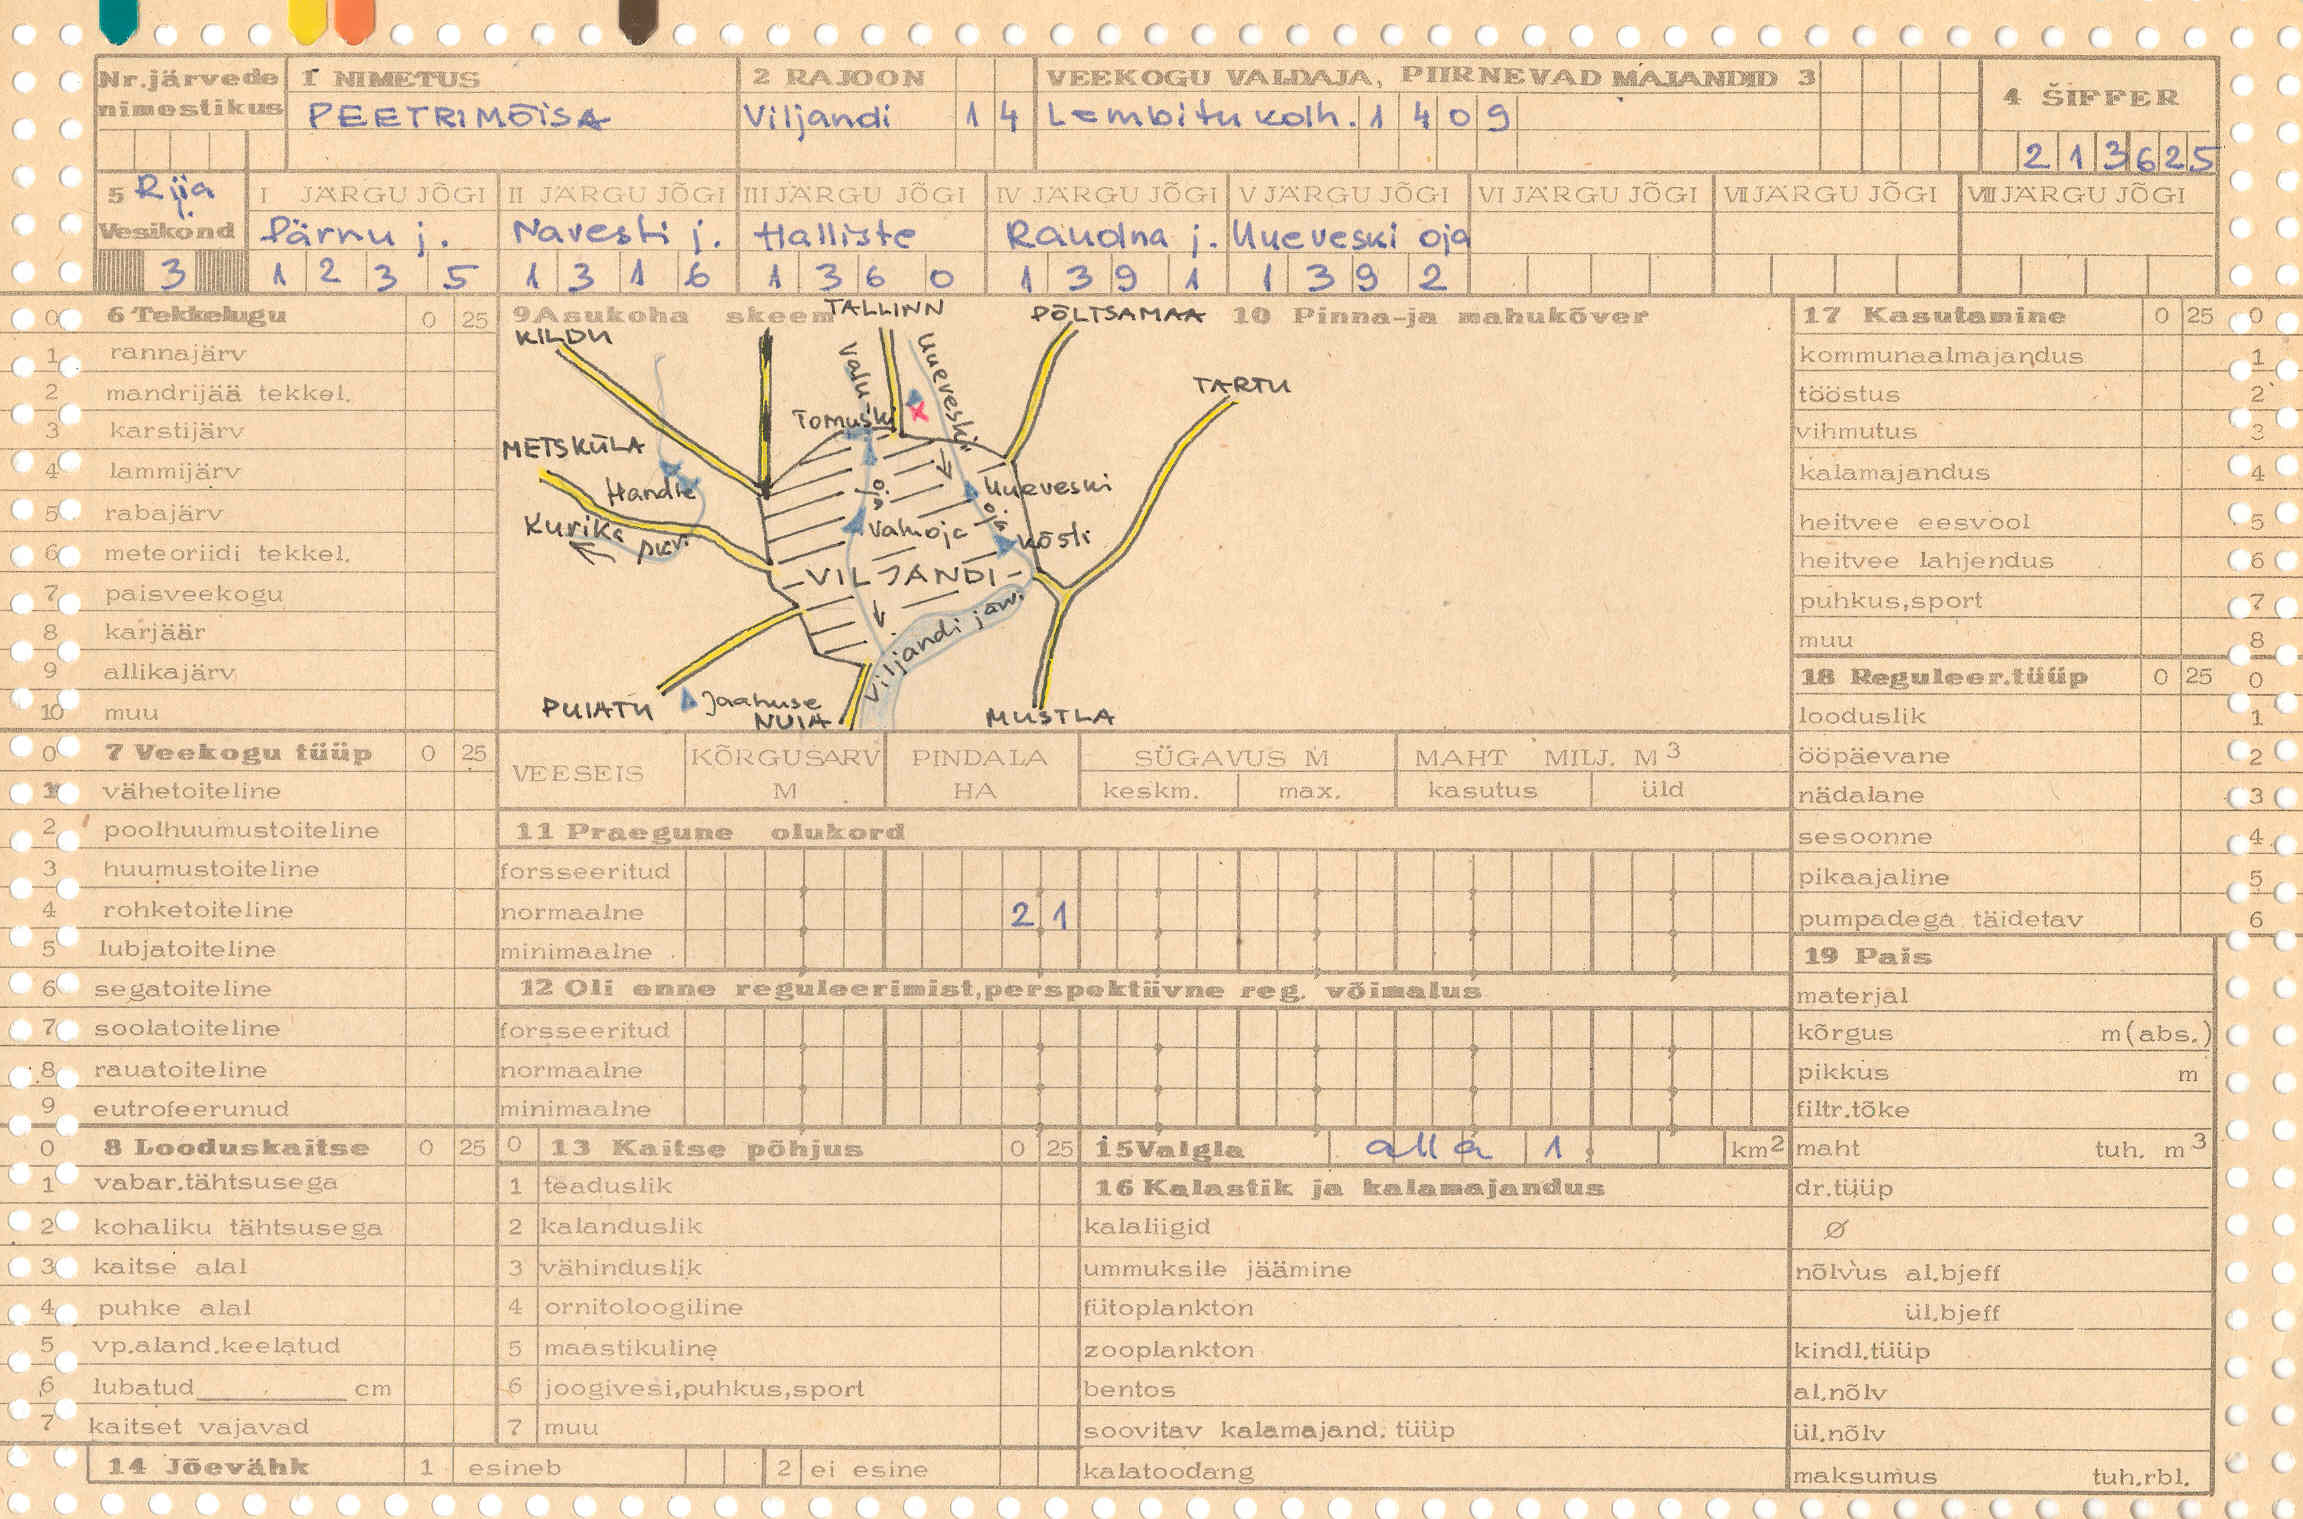 Nr.järvede nimestikus
1 NIMETUS
PEETRIMÕISA
2 RAJOON
Viljandi 1 4
VEEKOGU VALDAJA, PIIRNEVAD MAJANDID 3
Lembitu kolh. 1 4 0 9
4 ŠIFFER
2 1 3 6 2 5
5 Riia
Vesikond
3
I JÄRGU JÕGI
Pärnu j.
1 2 3 5
II JÄRGU JÕGI
Navesti j.
1 3 1 6
III JÄRGU JÕGI
Halliste
1 3 6 0
IV JÄRGU JÕGI
Raudna j.
1 3 9 1
V JÄRGU JÕGI
Uueveski oja
1 3 9 2
VI JÄRGU JÕGI
VII JÄRGU JÕGI
VIII JÄRGU JÕGI
0 6 Tekkelugu 0 25
1 rannajärv
2 mandrijää tekkel.
3 karstijärv
4 lammijärv
5 rabajärv
6 meteoriidi tekkel.
7 paisveekogu
8 karjäär
9 allikajärv
10 muu
0 7 Veekogu tüüp 0 25
1 vähetoiteline
2 poolhuumustoiteline
3 huumustoiteline
4 rohketoiteline
5 lubjatoiteline
6 segatoiteline
7 soolatoiteline
8 rauatoiteline
9 eutrofeerunud
0 8 Looduskaitse 0 25
1 vabar.tähtsusega
2 kohaliku tähtsusega
3 kaitse alal
4 puhke alal
5 vp.aland.keelatud
6 lubatud cm
7 kaitset vajavad
14 Jõevähk 1 esineb 2 ei esine
9 Asukoha skeem
10 Pinna-ja mahukõver
TALLINN
PÕLTSAMAA
KILDU
TARTU
Valu-
oja
Uueveski
oja
Tomuski
METSKÜLA
Handle
Uueveski
Kurika pkr.
Valuoja
Kõsti
VILJANDI
Viljandi järv.
PUIATU
Jaahuse
NUIA
MUSTLA
VEESEIS
KÕRGUSARV M
PINDALA HA
SÜGAVUS M
keskm. max.
MAHT MILJ. M3
kasutus üld
11 Praegune olukord
forsseeritud
normaalne 2 1
minimaalne
12 Oli enne reguleerimist,perspektiivne reg. võimalus
forsseeritud
normaalne
minimaalne
0 13 Kaitse põhjus 0 25
1 teaduslik
2 kalanduslik
3 vähinduslik
4 ornitoloogiline
5 maastikuline
6 joogivesi,puhkus,sport
7 muu
15 Valgla alla 1 km2
16 Kalastik ja kalamajandus
kalaliigid
ummuksile jäämine
fütoplankton
zooplankton
bentos
soovitav kalamajand. tüüp
kalatoodang
17 Kasutamine 0 25 0
kommunaalmajandus 1
tööstus 2
vihmutus 3
kalamajandus 4
heitvee eesvool 5
heitvee lahjendus 6
puhkus,sport 7
muu 8
18 Reguleer.tüüp 0 25 0
looduslik 1
ööpäevane 2
nädalane 3
sesoonne 4
pikaajaline 5
pumpadega täidetav 6
19 Pais
materjal
kõrgus m(abs.)
pikkus m
filtr.tõke
maht tuh. m3
dr.tüüp
Ø
nõlvus al.bjeff
ül.bjeff
kindl.tüüp
al.nõlv
ül.nõlv
maksumus tuh.rbl.